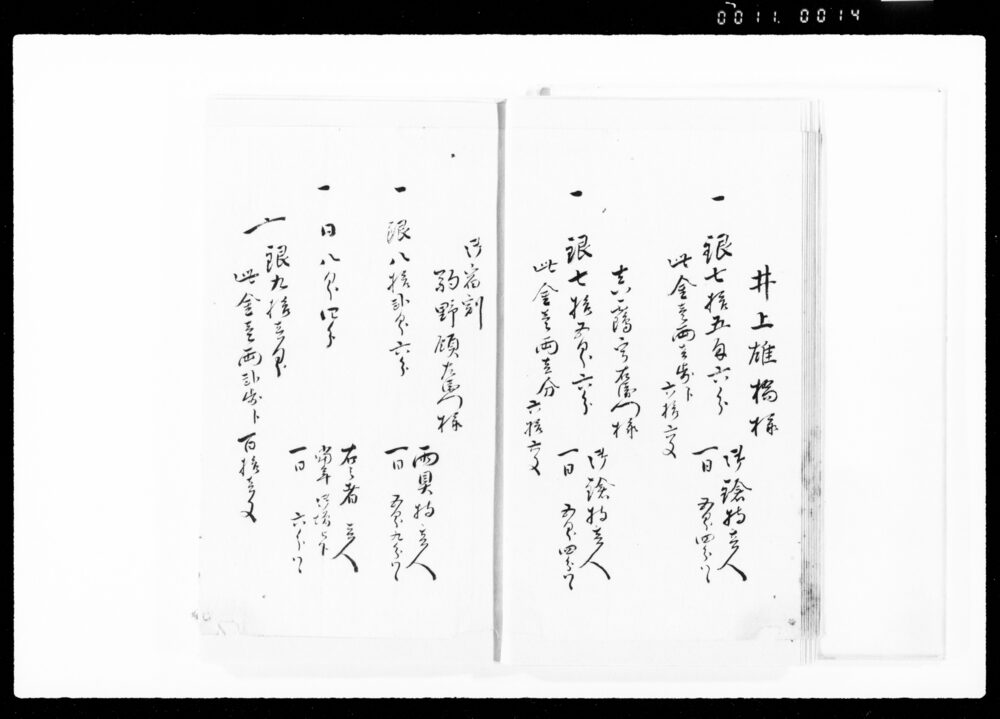 0011.0014
井上雄橘様
一 銀七拾五匁六分
此金壱両壱歩ト
六拾六文
御鑓持壱人
一日 五匁四分ツヽ
右衛門様
一 銀七拾五匁六分
此金壱両壱分
六拾六文
御鑓持壱人
一日 五匁四分ツヽ
御宿割
駒野順左衛門様
一 銀八拾弐匁六分
両具持壱人
一日 五匁九分ツヽ
一 日八匁四分
右之者 壱人
一日 六分ツヽ
〆 銀九拾壱匁
此金壱両弐歩ト
百拾壱文